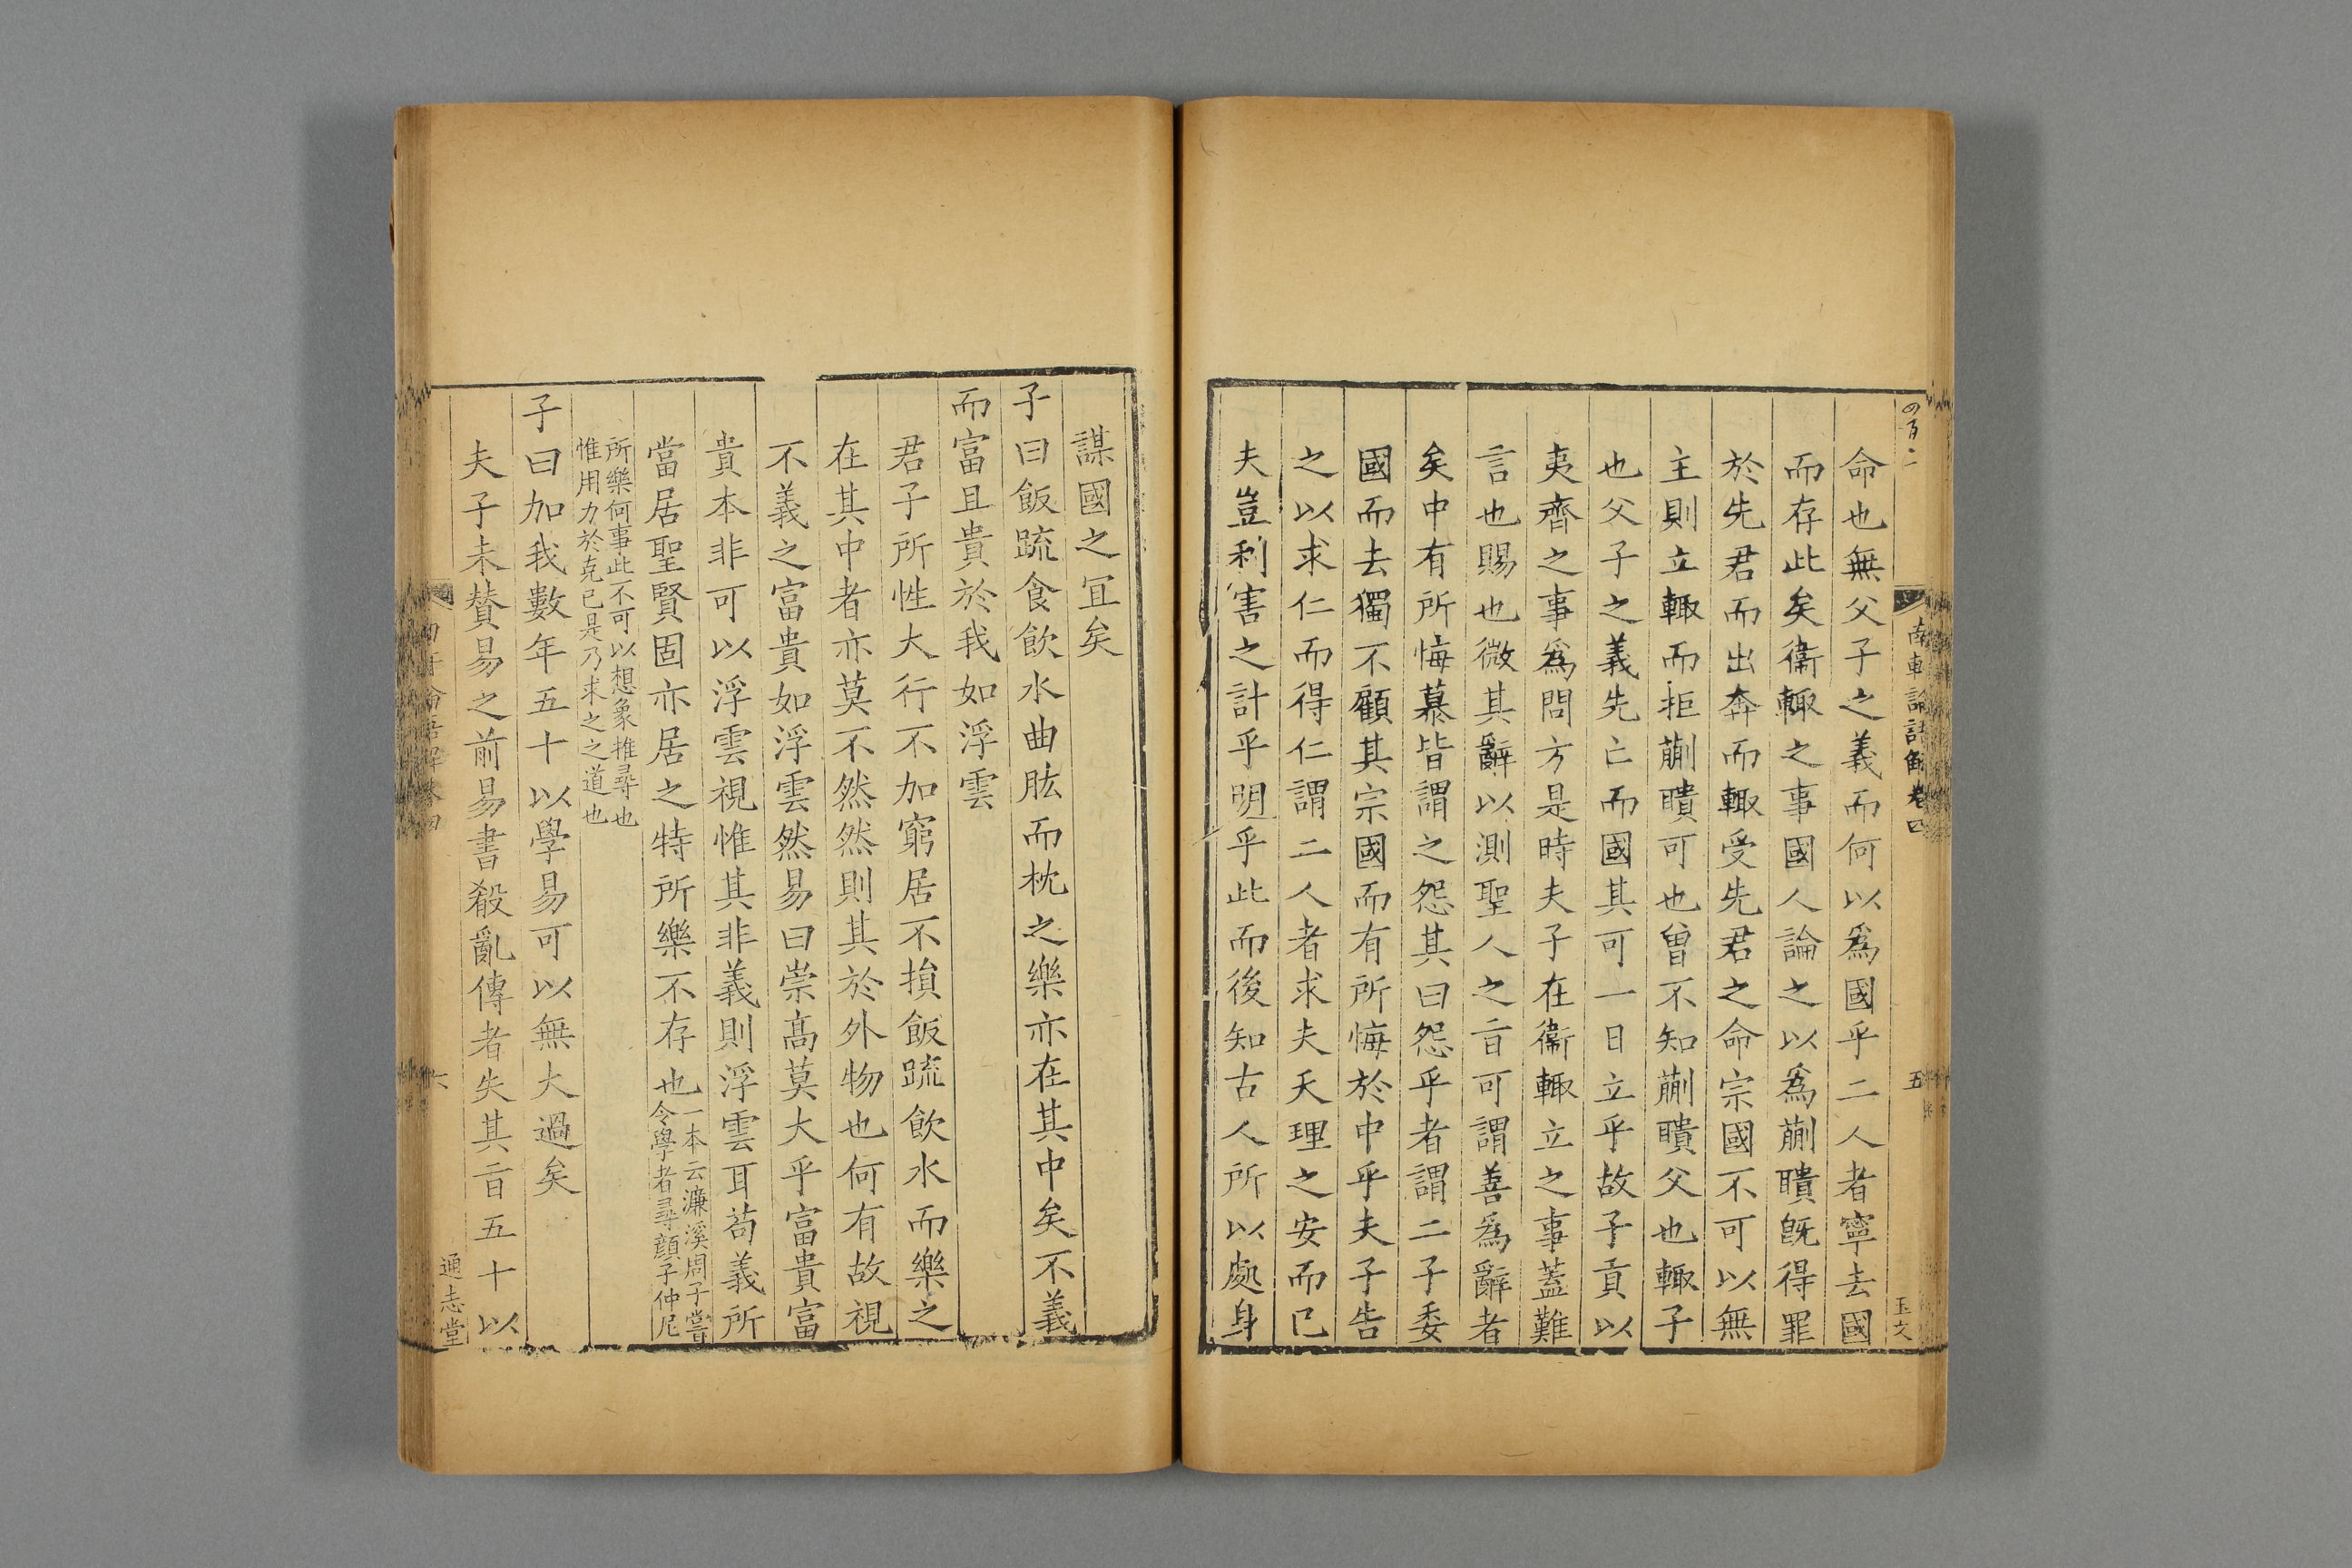 南軒論語解卷四
五
玉文
命也無父子之義而何以爲國乎二人者寧去國
而存此矣衞輒之事國人論之以爲蒯聵旣得罪
於先君而出奔而輒受先君之命宗國不可以無
主則立輒而拒蒯聵可也曾不知蒯聵父也輒子
也父子之義先亡而國其可一日立乎故子貢以
夷齊之事爲問方是時夫子在衞輒立之事蓋難
言也賜也微其辭以測聖人之㫖可謂善爲辭者
矣中有所悔慕皆謂之怨其曰怨乎者謂二子委
國而去獨不顧其宗國而有所悔於中乎夫子告
之以求仁而得仁謂二人者求夫天理之安而已
夫豈利害之計乎明乎此而後知古人所以處身
謀國之冝矣
子曰飯䟽食飮水曲肱而枕之樂亦在其中矣不義
而富且貴於我如浮雲
君子所性大行不加窮居不損飯䟽飮水而樂之
在其中者亦莫不然然則其於外物也何有故視
不義之富貴如浮雲然易曰崇髙莫大乎富貴富
貴本非可以浮雲視惟其非義則浮雲耳茍義所
當居聖賢固亦居之特所樂不存也一本云濂溪周子嘗
令學者尋顔子仲尼
所樂何事此不可以想象推尋也
惟用力於克己是乃求之之道也
子曰加我數年五十以學易可以無大過矣
夫子未賛易之前易書殽亂傳者失其㫖五十以
六
通志堂